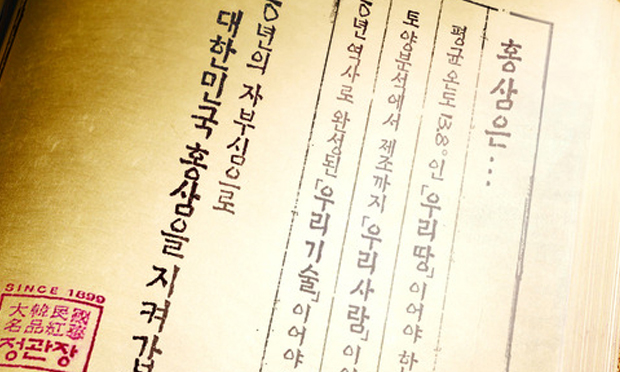 홍삼은...
평균 온도 13.8°인「우리땅」이어야 하
토양분석에서 제조까지「우리사람」이
0년역사로 완성된「우리기술」이어야
0년의 자부심으로
대한민국 홍삼을 지켜갑
SINCE 1899
大韓民國
名品紅蔘
정관장